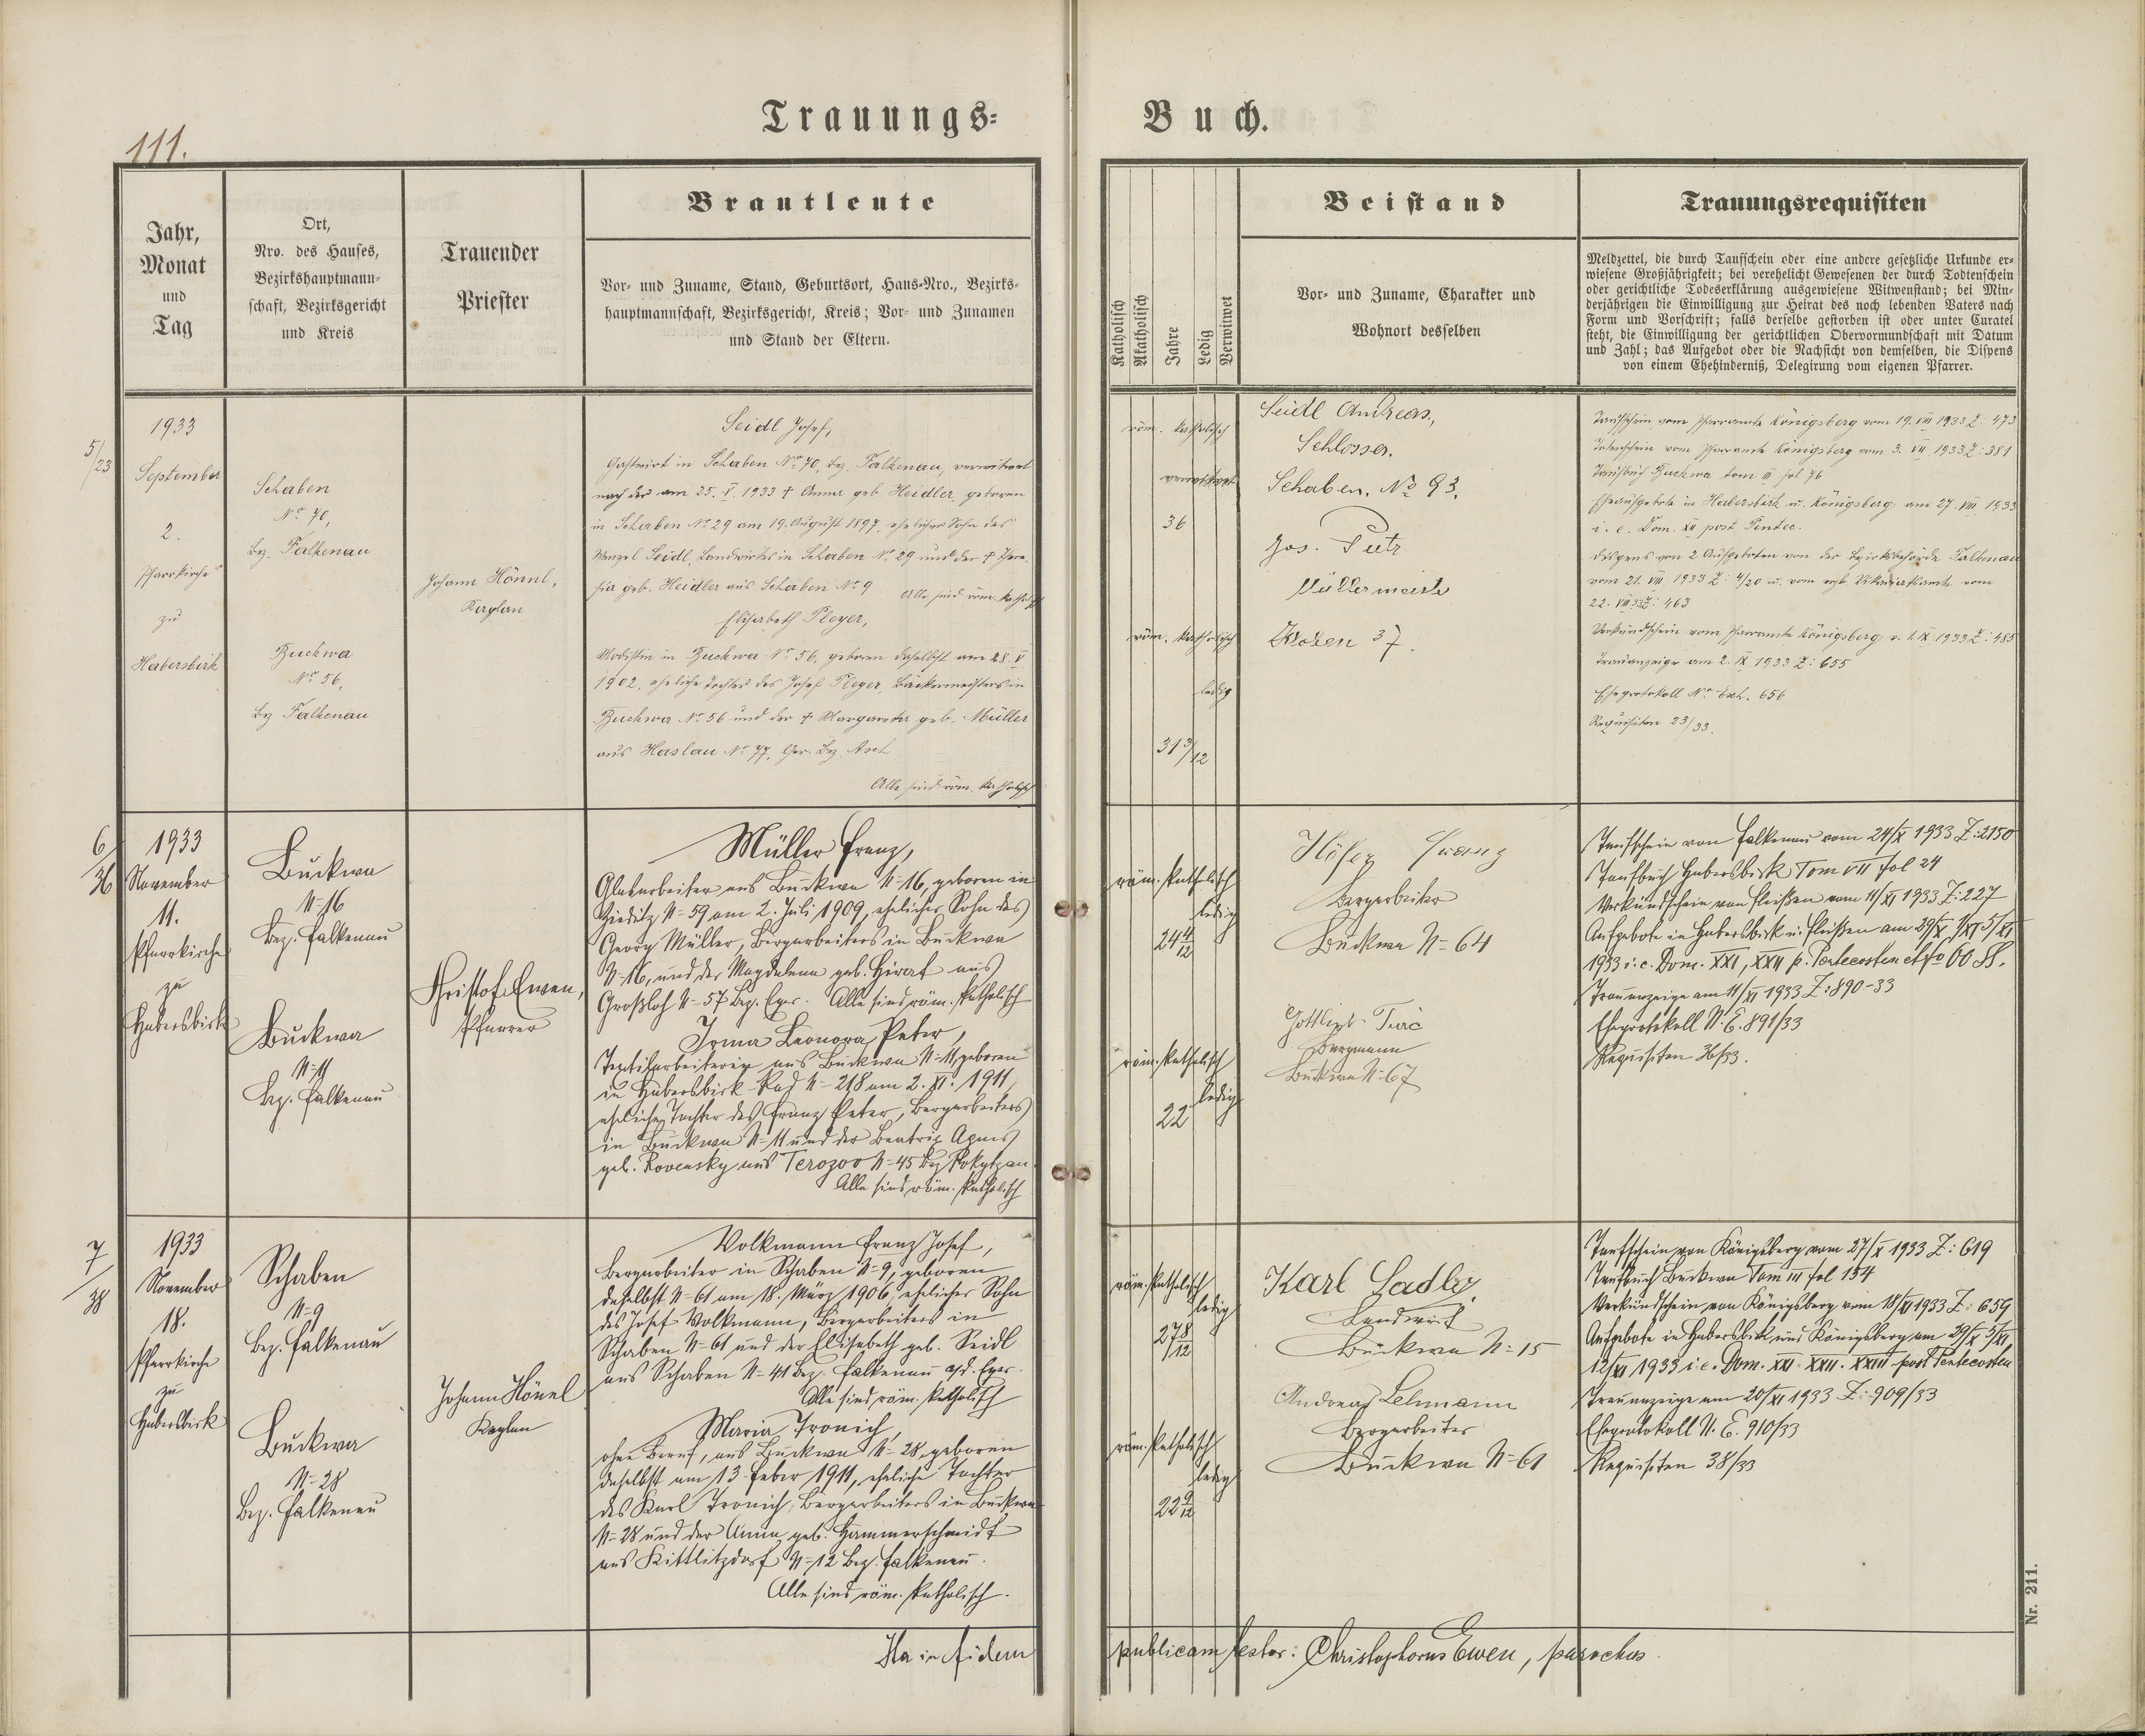 Trauungs-
Buch.
111.
Jahr,
Monat
und
Tag
Ort,
Nro. des Hauses,
Bezirkshauptmann-
schaft, Bezirksgericht
und Kreis
Trauender
Priester
Brautleute
Vor- und Zuname, Stand, Geburtsort, Haus-Nro., Bezirks-
hauptmannschaft, Bezirksgericht, Kreis; Vor- und Zunamen
und Stand der Eltern.
Katholisch
Akatholisch
Jahre
Ledig
Verwitwet
Beistand
Vor- und Zuname, Charakter und
Wohnort desselben
Trauungsrequisiten
Meldzettel, die durch Taufschein oder eine andere gesetzliche Urkunde er-
wiesene Großjährigkeit; bei verehelicht Gewesenen der durch Todtenschein
oder gerichtliche Todeserklärung ausgewiesene Witwenstand; bei Min-
derjährigen die Einwilligung zur Heirat des noch lebenden Vaters nach
Form und Vorschrift; falls derselbe gestorben ist oder unter Curatel
steht, die Einwilligung der gerichtlichen Obervormundschaft mit Datum
und Zahl; das Aufgebot oder die Nachsicht von demselben, die Dispens
von einem Ehehinderniß, Delegirung vom eigenen Pfarrer.
5/23
1933
September
2.
Pfarrkirche
zu
Habersbirk
Schaben
No 70,
bz. Falkenau
Buckwa
No 56,
bz Falkenau
Johann Hönnl,
Kaplan
Seidl Josef,
Gastwirt in Schaben No 70, bez. Falkenau, verwitwet
nach der am 25. V. 1933 † Anna geb. Heidler, geboren
in Schaben No 29 am 19. August 1897, ehelicher Sohn des
Wenzel Seidl, Landwirtes in Schaben No 29 und der † There-
sia geb. Heidler aus Schaben No 9 Alle sind röm. katholisch
Elisabeth Pleyer,
Modistin in Buckwa No 56, geboren daselbst am 28. V
1902, eheliche Tochter des Josef Pleyer, Bäckermeisters in
Buckwa No 56 und der † Margareta geb. Müller
aus Haslau No 77, Ger. Bz. Asch
Alle sind röm. katholisch
röm. katholisch
verwitwet
36
röm. katholisch
ledig
31 3/12
Seidl Andreas,
Schlosser.
Schaben. No 93.
Jos. Putz
Müllermeister
37.
Taufschein vom Pfarramte Königsberg vom 19. VIII 1933 Z: 473
Totenschein vom Pfarramte Königsberg vom 3. VII 1933 Z: 381
Taufbuch Buckwa tom III fol 76
Eheaufgebote in Habersbirk u. Königsberg am 27. VIII 1933
i. e. Dom. XII post Pentec.
Dispens von 2 Aufgeboten von der Bezirksbehörde Falkenau
vom 21. VIII 1933 Z: 4/20 u. vom Vikariatsamte vom
22. VIII 33 Z: 463
Verkündschein vom Pfarramte Königsberg v. 1. IX 1933 Z: 485
Trauanzeige am 2. IX 1933 Z: 655
Eheprotokoll No Exh. 656
Requisiten 23/33.
6/36
1933
November
11.
Pfarrkirche
zu
Habersbirk
Buckwa
N=16
Bez. Falkenau
Buckwa
N=11
Bez. Falkenau
Christof Ewen,
Pfarrer
Müller Franz,
Glasarbeiter aus Buckwa N=16, geboren in
Zieditz N=59 am 2. Juli 1909, ehelicher Sohn des
Georg Müller, Bergarbeiters in Buckwa
N=16, und der Magdalena geb. aus
Großloh N=57 Bez. Eger. Alle sind röm. katholisch
Irma Leonora Peter,
Textilarbeiterin aus Buckwa N=11, geboren
in Habersbirk-Rad N=218 am 2. XI. 1911,
eheliche Tochter des Franz Peter, Bergarbeiters
in Buckwa N=11 und der Beatrix Agnes
geb. Rovensky aus Terozoo N=45 Bez Rokytzan.
Alle sind röm. katholisch
röm. katholisch
ledig
24 4/12
röm. katholisch
ledig
22
Höfer Franz
Bergarbeiter
Buckwa N=64
Bergmann
Buckwa N=67
Taufschein von Falkenau vom 24/X 1933 Z: 2150
Taufbuch Habersbirk Tom VII fol 24
Verkündschein von Fleißen vom 11/XI 1933 Z: 227
Aufgebote in Habersbirk u. Fleißen am 29/X 1/XI 5/XI
1933 i. e. Dom. XXI, XXII p. Pentecosten et fo OO SS.
Trauanzeige am 11/XI 1933 Z: 890-33
Eheprotokoll N. E. 891/33
Requisiten 36/33.
7/38
1933
November
18.
Pfarrkirche
zu
Habersbirk
Schaben
N=9
Bez. Falkenau
Buckwa
N=28
Bez. Falkenau
Johann Hönnl
Kaplan
Volkmann Franz Josef,
Bergarbeiter in Schaben N=9, geboren
daselbst N=61 am 18. März 1906, ehelicher Sohn
des Josef Volkmann, Bergarbeiters in
Schaben N=61 und der Elisabeth geb. Seidl
aus Schaben N=41 Bez. Falkenau a/d. Eger.
Alle sind röm. katholisch
Maria Tronich,
ohne Beruf, aus Buckwa N=28, geboren
daselbst am 13. Feber 1911, eheliche Tochter
des Karl Tronich, Bergarbeiters in Buckwa
N=28 und der Anna geb. Hammerschmidt
aus Kittlitzdorf N=12 Bez. Falkenau.
Alle sind röm. katholisch.
röm. katholisch
ledig
27 8/12
röm. katholisch
ledig
22 9/12
Karl Sadly
Landwirt
Buckwa N=15
Andreas Lehmann
Bergarbeiter
Buckwa N=61
Taufschein von Königsberg vom 27/X 1933 Z: 619
Taufbuch Buckwa Tom III fol 154
Verkündschein von Königsberg vom 18/XI 1933 Z: 659
Aufgebote in Habersbirk und Königsberg am 29/X 5/XI
12/XI 1933 i. e. Dom. XXI. XXII. XXIII post Pentecosten
Trauanzeige am 20/XI 1933 Z: 909/33
Eheprotokoll N. E. 910/33
Requisiten 38/33
Ita in fidem
publicam testor: Christophorus Ewen, parochus.
Nr. 211.